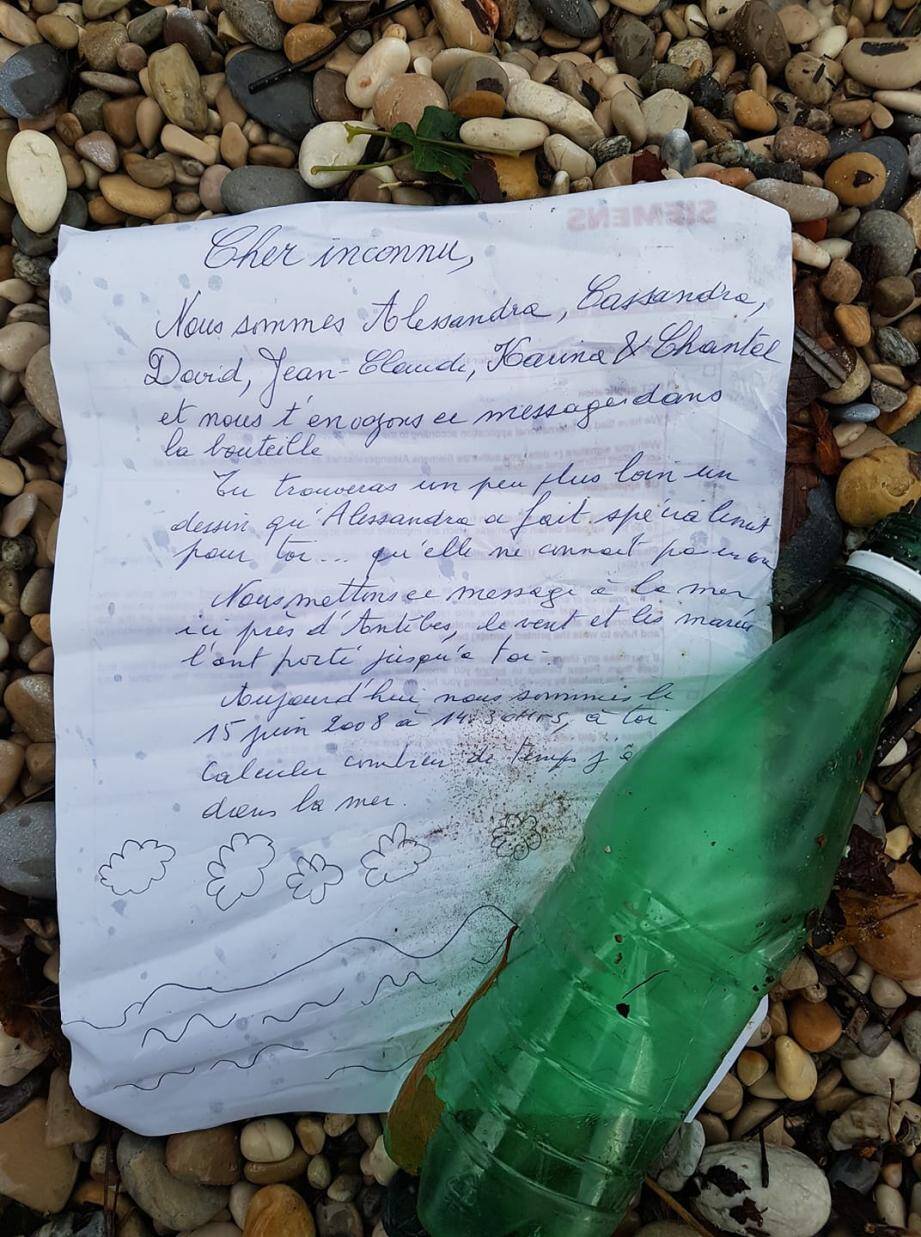 SIEMENS
Cher inconnu,
Nous sommes Alessandra, Cassandra,
David, Jean-Claude, Karina & Chantal
et nous t'envoyons ce message dans
la bouteille
Tu trouveras un peu plus loin un
dessin qu'Alessandra a fait spécialement
pour toi... qu'elle ne connait pas encore
Nous mettons ce message à la mer
ici près d'Antibes, le vent et les marées
l'ont porté jusqu'à toi.
Aujourd'hui nous sommes le
15 juin 2008 à 14:30 Hrs, à toi
calculer combien de temps j'
dans la mer.